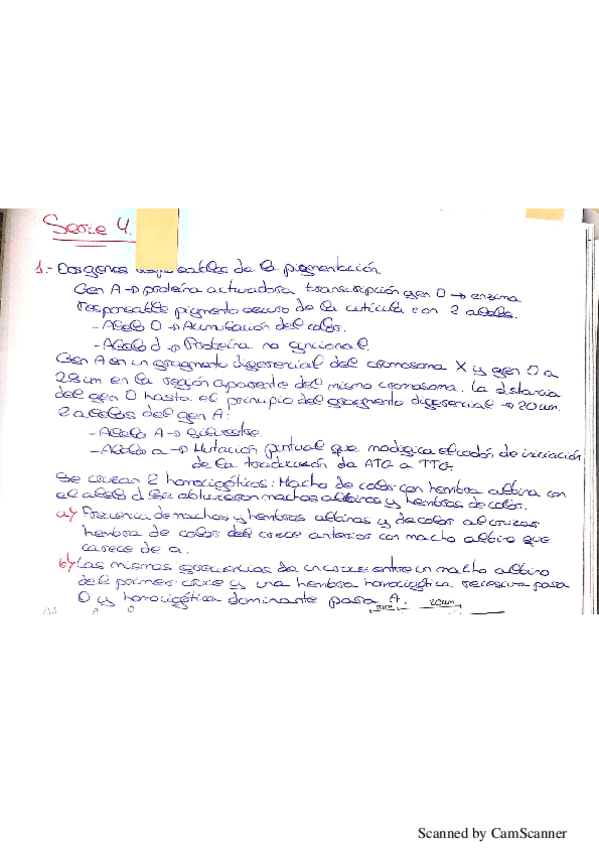 Serie 4.
1.- Dos genes responsables de la pigmentación.
Gen A → proteína activadora transcripción gen D → enzima
responsable pigmento oscuro de la cutícula con 2 alelos.
- Alelo D → Acumulación del color.
- Alelo d → Proteína no funcional.
Gen A en un fragmento diferencial del cromosoma X y gen D a
28 cm en la región apareante del mismo cromosoma. La distancia
del gen D hasta el principio del fragmento diferencial → 20 cm.
2 alelos del gen A:
- Alelo A → Silvestre.
- Alelo a → Mutación puntual que modifica el codón de iniciación
de la traducción de ATG a TTG.
Se cruzan 2 homocigóticos: Macho de color con hembra albina con
el alelo d. Se obtuvieron machos albinos y hembras de color.
a) Frecuencia de machos y hembras albinas y de color al cruzar
hembra de color del cruce anterior con macho albino que
carece de a.
b) Las mismas frecuencias de un cruce entre un macho albino
del primer cruce y una hembra homocigótica recesiva para
D y homocigótica dominante para A.
20cm
Scanned by CamScanner